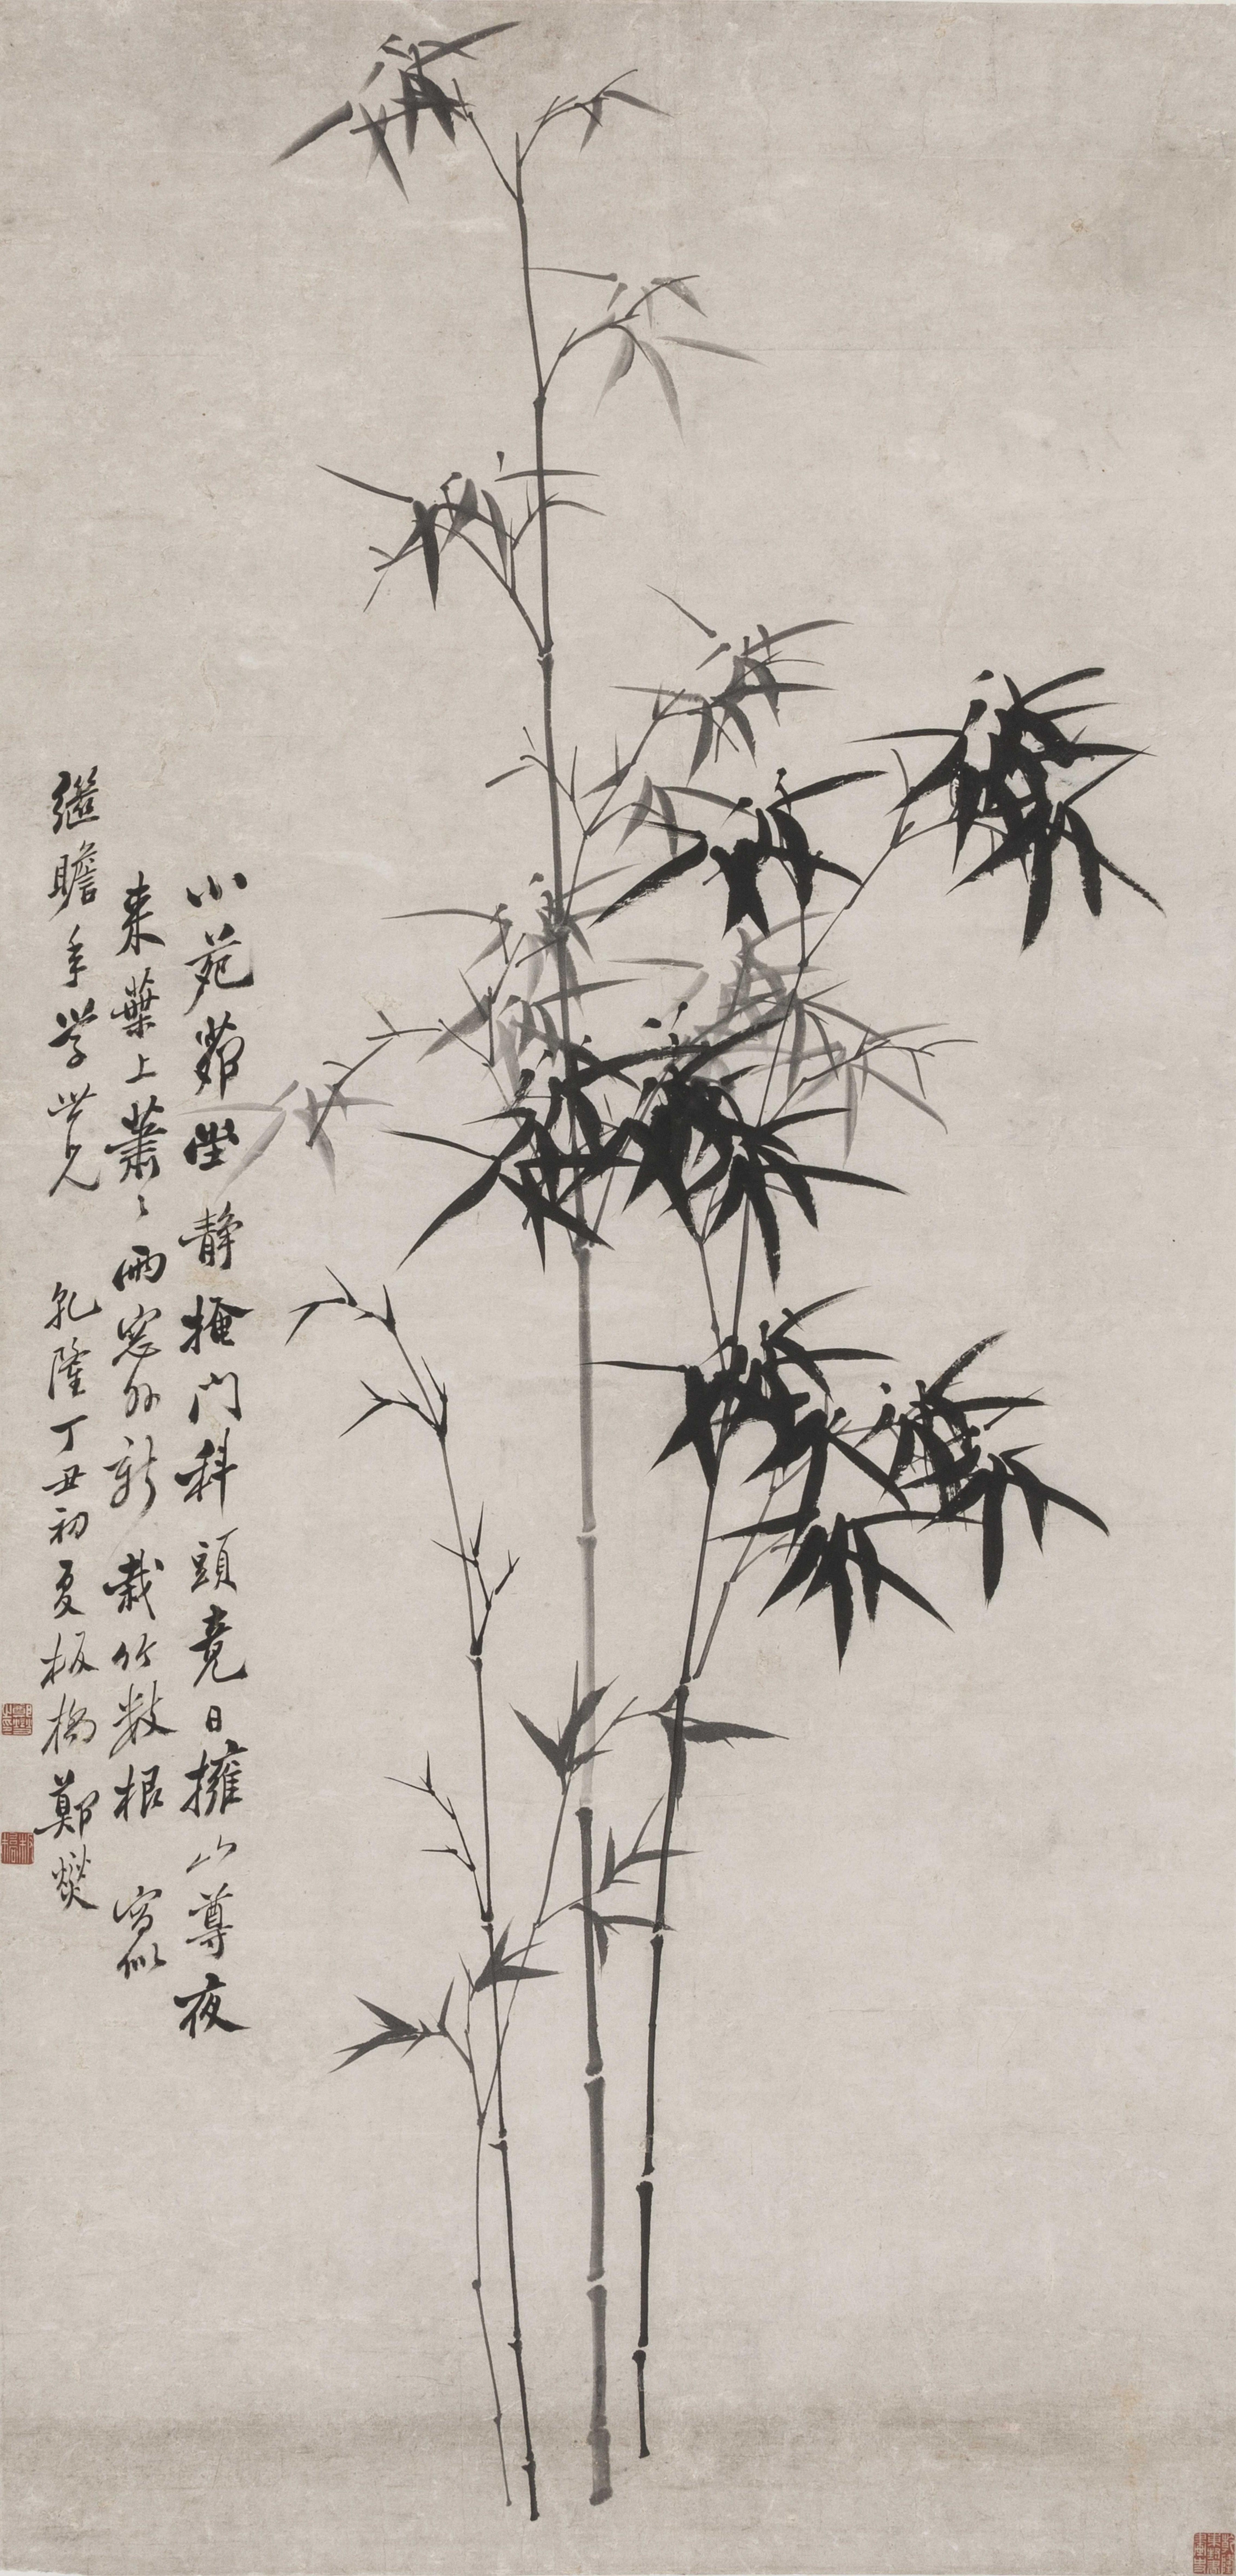 小苑茆堂静掩門科頭竟日擁山尊夜
来葉上蕭々雨窓外新栽竹数根 寫似
继瞻年学世兄 乾隆丁丑初夏板橋鄭燮